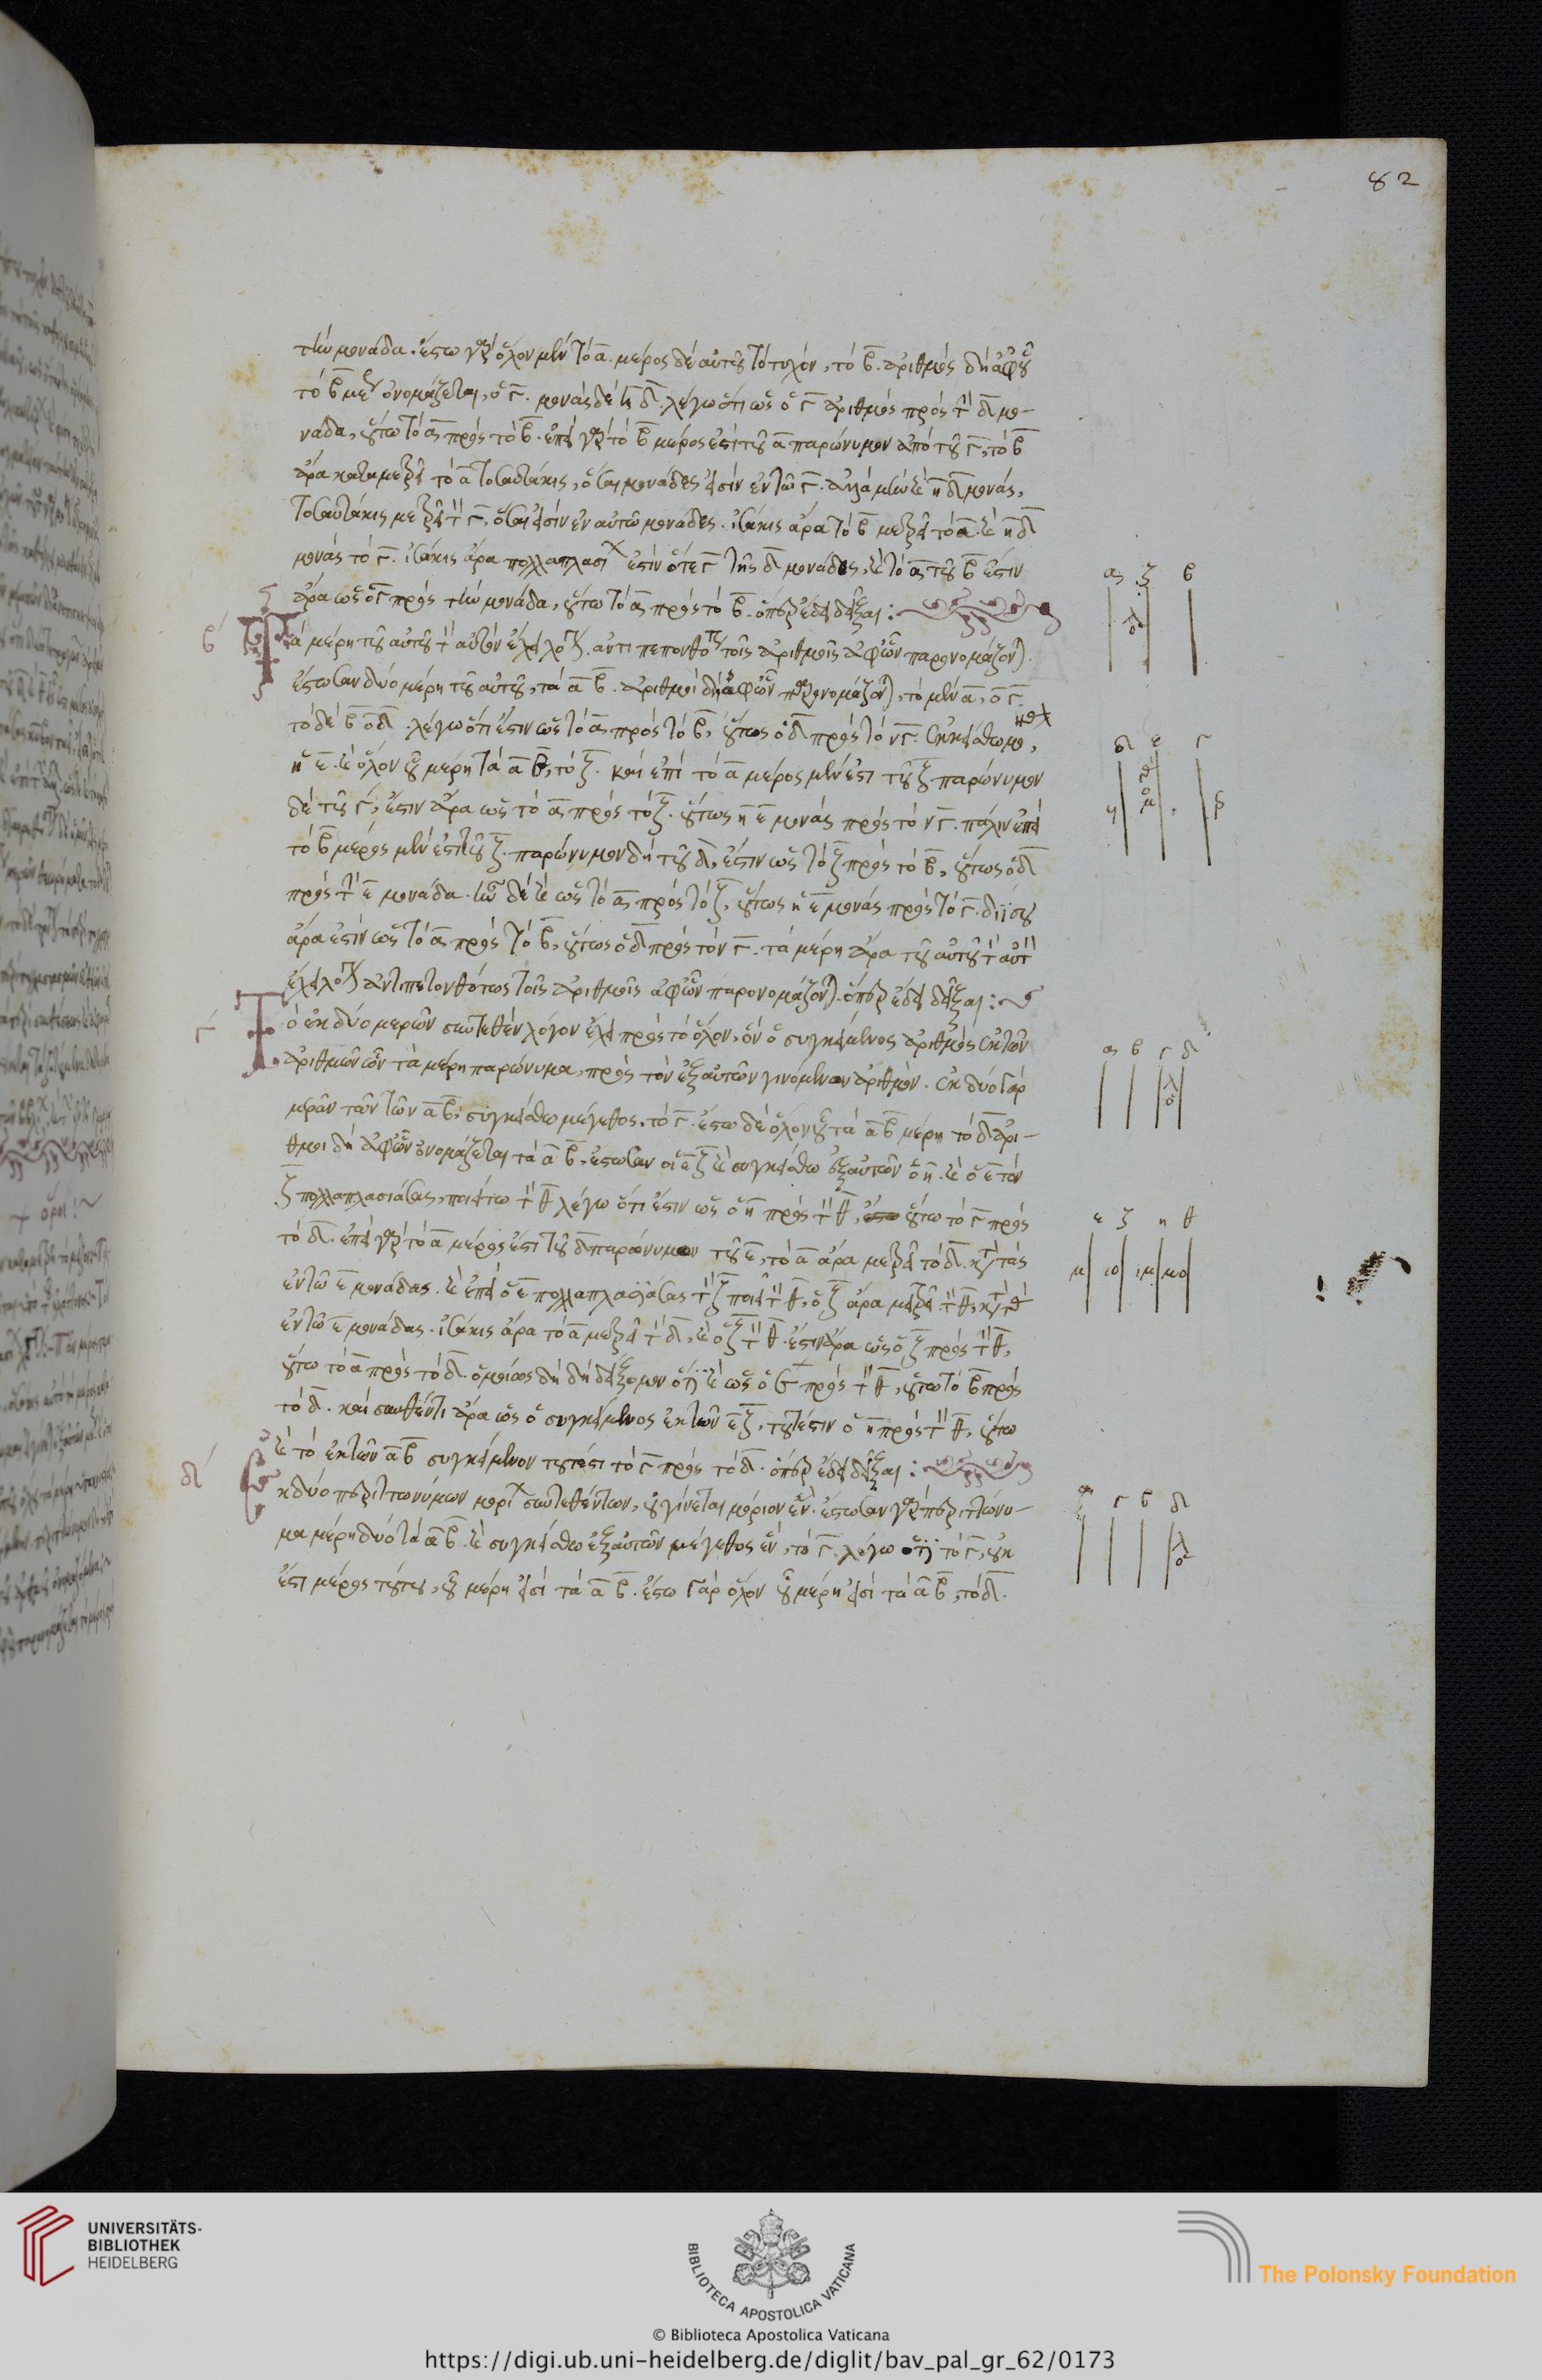 82
τὴν μονάδα. ἔστω γὰρ ὅλον μὲν τὸ α. μέρος δὲ αὐτοῦ τὸ τυχόν, τὸ β. ἀριθμὸς δὴ ἀφ' οὗ
τὸ β μέρος ὀνομάζεται, ὁ γ. μονὰς δὲ ἡ δ. λέγω ὅτι ὡς ὁ γ ἀριθμὸς πρὸς τὴν δ μο-
νάδα, οὕτω τὸ α πρὸς τὸ β. ἐπεὶ γὰρ τὸ β μέρος ἐστὶ τοῦ α παρώνυμον ἀπὸ τοῦ γ, τὸ β
ἄρα καταμετρεῖ τὸ α τοσαυτάκις, ὅσαι μονάδες εἰσὶν ἐν τῷ γ. ἀλλὰ μὴν καὶ ἡ δ μονάς,
τοσαυτάκις μετρεῖ τὸν γ, ὅσαι εἰσὶν ἐν αὐτῷ μονάδες. ἰσάκις ἄρα τὸ β μετρεῖ τὸ α. καὶ ἡ δ
μονὰς τὸ γ. ἰσάκις ἄρα πολλαπλασι ἐστὶν ὅ τε γ τῆς δ μονάδος, καὶ τὸ α τοῦ β ἐστιν
ἄρα ὡς ὁ γ πρὸς τὴν μονάδα, οὕτω τὸ α πρὸς τὸ β. ὅπερ ἔδει δεῖξαι:
β Τὰ μέρη τοῦ αὐτοῦ τὸν αὐτὸν ἔχει λόγον. ἀντιπεπονθότως τοῖς ἀριθμοῖς ἀφ' ὧν παρονομάζονται.
ἔστωσαν δύο μέρη τοῦ αὐτοῦ, τὰ α β. ἀριθμοὶ δὴ ἀφ' ὧν παρονομάζονται, τὸ μὲν α, ὁ γ.
τὸ δὲ β ὁ δ. λέγω ὅτι ἔστιν ὡς τὸ α πρὸς τὸ β, οὕτως ὁ δ πρὸς τὸν γ. ἐκκείσθω μο,
ἡ ε. καὶ ὅλον οὗ μέρη τὰ α β, τὸ ζ. καὶ ἐπεὶ τὸ α μέρος μέν ἐστι τοῦ ζ παρώνυμον
δὲ τοῦ γ, ἔστιν ἄρα ὡς τὸ α πρὸς τὸ ζ. οὕτως ἡ ε μονὰς πρὸς τὸν γ. πάλιν ἐπεὶ
τὸ β μέρος μέν ἐστι τοῦ ζ. παρώνυμον δὴ τοῦ δ, ἔστιν ὡς τὸ ζ πρὸς τὸ β, οὕτως ὁ δ
πρὸς τὴν ε μονάδα. ἦν δὲ καὶ ὡς τὸ α πρὸς τὸ ζ, οὕτως ἡ ε μονὰς πρὸς τὸ γ. διΐσου
ἄρα ἐστὶν ὡς τὸ α πρὸς τὸ β, οὕτως ὁ δ πρὸς τὸν γ. τὰ μέρη ἄρα τοῦ αὐτοῦ τὸν αὐτὸν
ἔχει λόγον ἀντιπεπονθότως τοῖς ἀριθμοῖς ἀφ' ὧν παρονομάζονται. ὅπερ ἔδει δεῖξαι:
γ Τὸ ἐκ δύο μερῶν συντεθὲν λόγον ἔχει πρὸς τὸ ὅλον, ὃν ὁ συγκείμενος ἀριθμὸς ἐκ τῶν
ἀριθμῶν ὧν τὰ μέρη παρώνυμα, πρὸς τὸν ἐξ αὐτῶν γινόμενον ἀριθμόν. ἐκ δύο γὰρ
μερῶν τῶν α β, συγκείσθω μέγεθος, τὸ γ. ἔστω δὲ ὅλον οὗ τὰ α β μέρη τὸ δ ἀρι-
θμοὶ δὴ ἀφ' ὧν ὀνομάζεται τὰ α β, ἔστωσαν οἱ ε ζ καὶ συγκείσθω ἐξ αὐτῶν ὁ η. καὶ ὁ ε τὸν
ζ πολλαπλασιάσας, ποιείτω τὸν θ λέγω ὅτι ἔστιν ὡς ὁ η πρὸς τὸν θ, οὕτω τὸ γ πρὸς
τὸ δ. ἐπεὶ γὰρ τὸ α μέρος ἐστὶ τοῦ δ παρώνυμον τοῦ ε, τὸ α ἄρα μετρεῖ τὸ δ. κατὰ τὰς
ἐν τῷ ε μονάδας. καὶ ἐπεὶ ὁ ε πολλαπλασιάσας τὸν ζ ποιεῖ τὸν θ, ὁ ζ ἄρα μετρεῖ τὸν θ, κατὰ τὰς
ἐν τῷ ε μονάδας. ἰσάκις ἄρα τὸ α μετρεῖ τὸ δ, καὶ ὁ ζ τὸν θ. ἔστιν ἄρα ὡς ὁ ζ πρὸς τὸν θ,
οὕτω τὸ α πρὸς τὸ δ. ὁμοίως δὴ δείξομεν ὅτι καὶ ὡς ὁ ϛ πρὸς τὸν θ, οὕτω τὸ β πρὸς
τὸ δ. καὶ συνθέντι ἄρα ὡς ὁ συγκείμενος ἐκ τῶν ε ζ, τουτέστιν ὁ η πρὸς τὸν θ, οὕτω
καὶ τὸ ἐκ τῶν α β συγκείμενον τουτέστι τὸ γ πρὸς τὸ δ. ὅπερ ἔδει δεῖξαι:
δ Ἐκ δύο περιττωνύμων μορίων συντεθέντων, οὐ γίνεται μόριον ἕν. ἔστωσαν γὰρ περιττώνυ-
μα μέρη δύο τὰ α β. καὶ συγκείσθω ἐξ αὐτῶν μέγεθος ἕν, τὸ γ. λέγω ὅτι τὸ γ, οὐκ
ἔστι μέρος τούτου, οὗ μέρη εἰσὶ τὰ α β. ἔστω γὰρ ὅλον οὗ μέρη εἰσὶ τὰ α β, τὸ δ.
α ζ β
δ ε γ
α β γ δ
ε ζ η θ
γ β δ
UNIVERSITÄTS-
BIBLIOTHEK
HEIDELBERG
BIBLIOTECA APOSTOLICA VATICANA
The Polonsky Foundation
© Biblioteca Apostolica Vaticana
https://digi.ub.uni-heidelberg.de/diglit/bav_pal_gr_62/0173